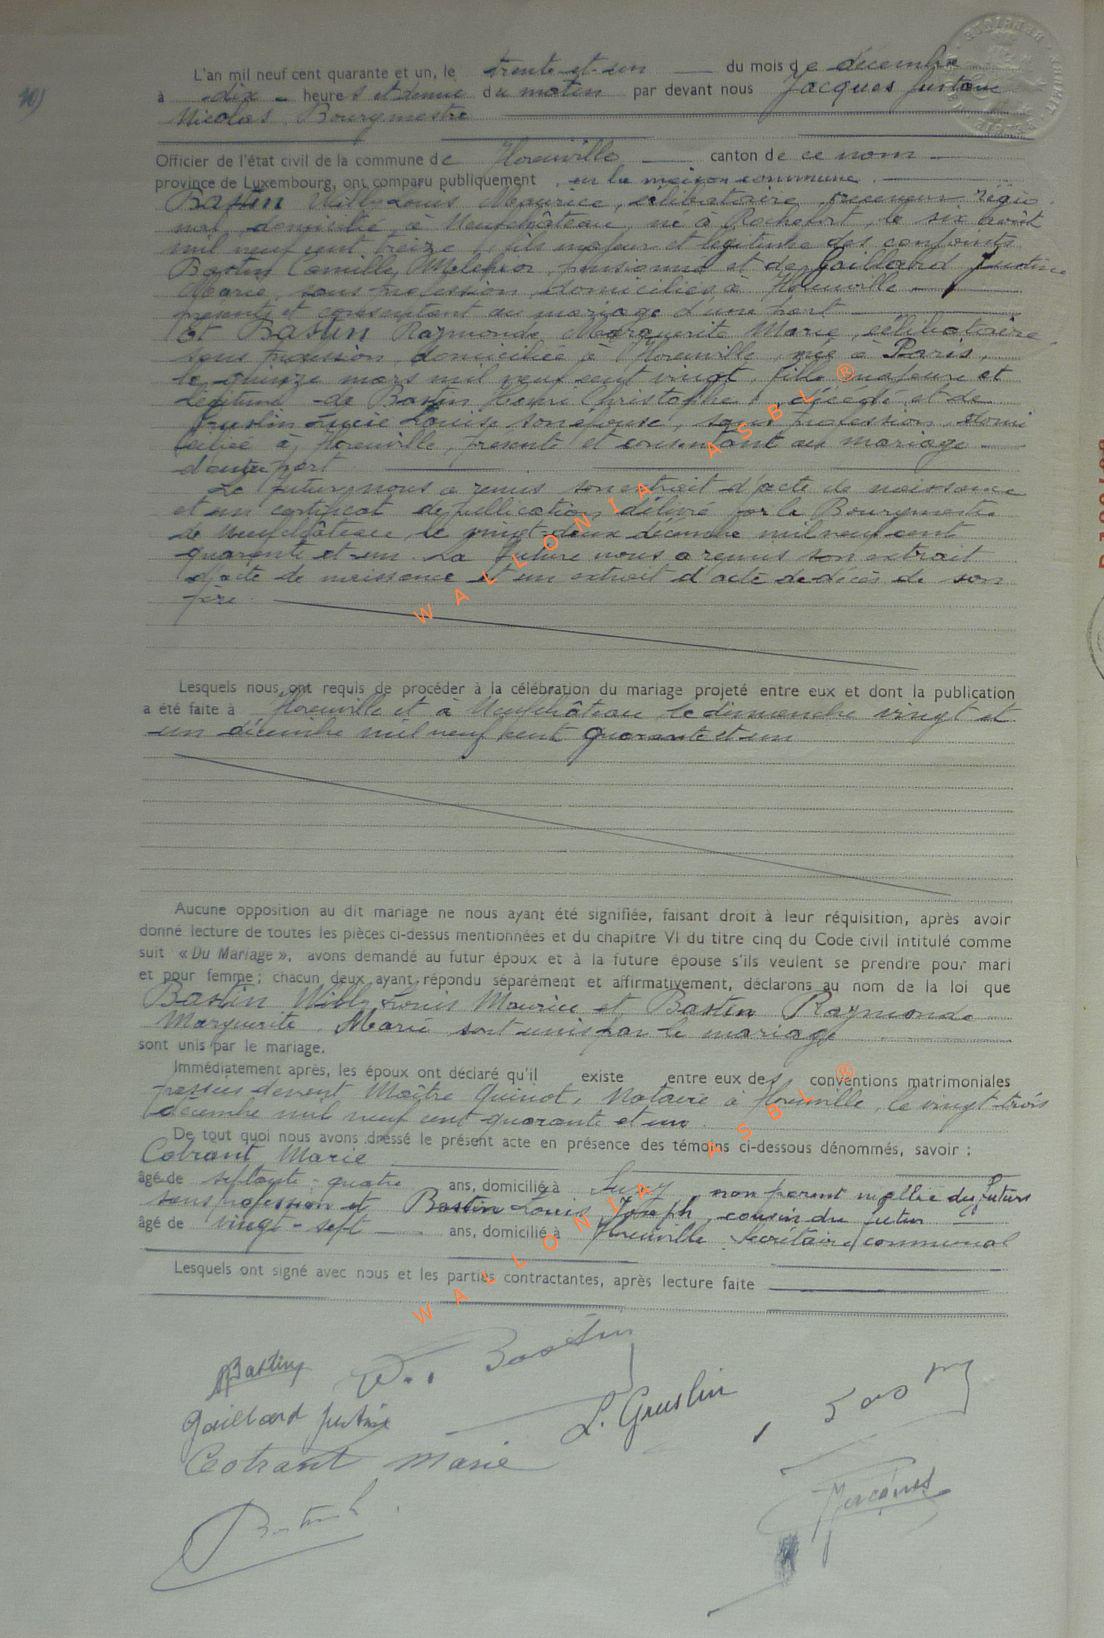 L'an mil neuf cent quarante et un, le trente-et-un du mois de décembre
à dix heures et demie du matin par devant nous Jacques Gustave
Nicolas Bourgmestre
Officier de l'état civil de la commune de Florenville canton de ce nom
province de Luxembourg, ont comparu publiquement en la maison commune
Bastin Willy Louis Maurice, célibataire, receveur régio
nal, domicilié à Neufchâteau, né à Rochefort, le six août
mil neuf cent treize, fils majeur et légitime des conjoints
Bastin Camille Melchior, pensionné et de Gaillard Justine
Marie, sans profession domiciliés à Florenville
présents et consentant au mariage d'une part
Et Bastin Raymonde Marguerite Marie, célibataire
sans profession domiciliée à Florenville, née à Paris,
le quinze mars mil neuf cent vingt, fille majeure et
légitime de Bastin Henri Christophe, décédé et de
Gruslin Lucie Louise son épouse, sans profession domi
ciliée à Florenville, présente et consentant au mariage
d'autre part
Le futur nous a remis son extrait d'acte de naissance
et un certificat de publication délivré par le Bourgmestre
de Neufchâteau, le vingt-deux décembre mil neuf cent
quarante et un. La future nous a remis son extrait
d'acte de naissance et un extrait d'acte de décès de son
père.
Lesquels nous ont requis de procéder à la célébration du mariage projeté entre eux et dont la publication
a été faite à Florenville et à Neufchâteau le dimanche vingt et
un décembre mil neuf cent quarante et un
Aucune opposition au dit mariage ne nous ayant été signifiée, faisant droit à leur réquisition, après avoir
donné lecture de toutes les pièces ci-dessus mentionnées et du chapitre VI du titre cinq du Code civil intitulé comme
suit « Du Mariage », avons demandé au futur époux et à la future épouse s'ils veulent se prendre pour mari
et pour femme ; chacun deux ayant répondu séparément et affirmativement, déclarons au nom de la loi que
Bastin Willy Louis Maurice et Bastin Raymonde
Marguerite Marie sont unis par le mariage
sont unis par le mariage.
Immédiatement après, les époux ont déclaré qu'il existe entre eux des conventions matrimoniales
passées devant Maître Quinot, Notaire à Florenville, le vingt-trois
décembre mil neuf cent quarante et un.
De tout quoi nous avons dressé le présent acte en présence des témoins ci-dessous dénommés, savoir :
Cotrant Marie
âgé de septante-quatre ans, domicilié à non parent ni allié des futurs
sans profession et Bastin Louis Joseph, cousin du futur
âgé de vingt-sept ans, domicilié à Florenville Secrétaire communal
Lesquels ont signé avec nous et les parties contractantes, après lecture faite
RBastin W. Bastin
Gaillard Justine L. Gruslin
Cotrant Marie
Jacques
WALLONIA ASBL ®
WALLONIA ASBL ®